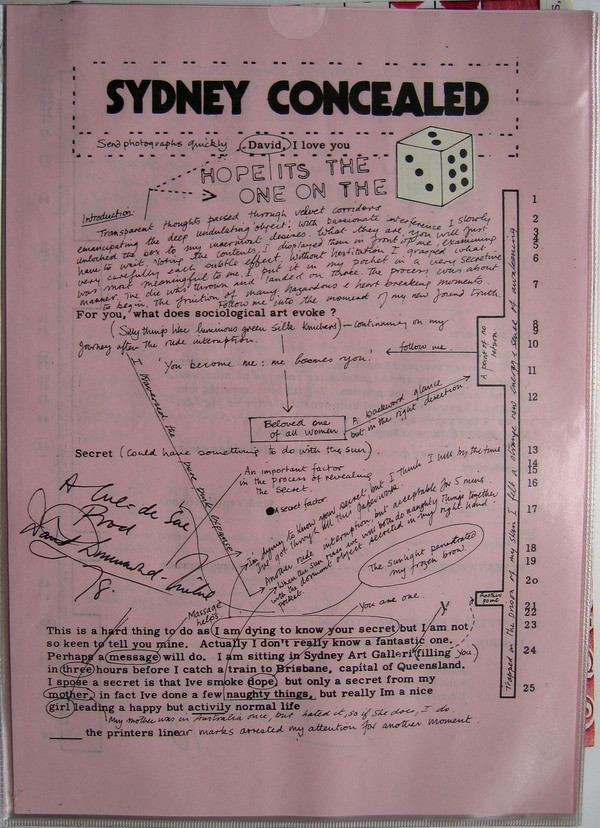 SYDNEY CONCEALED
Send photographs quickly David, I love you
HOPE ITS THE
ONE ON THE
Introduction
Transparent thoughts passed through velvet corridors
emancipating the deep undulating object: with passionate interference I slowly
unlocked the box to my innermost desires. What they are, you will just
have to wait. Voting the contents, I displayed them in front of me, examining
very carefully each subtle effect. Without hesitation I grasped what
was most meaningful to me. I put it in my pocket in a very secretive
manner. The die was thrown and I landed on three the process was about
to begin. The fruition of many hazardous & heart breaking moments.
Follow me into the moment of my new found truth.
For you, what does sociological art evoke ?
(Silly things like luminous green silk knickers) – continuing on my
journey after the rude interruption.
'You become me : me becomes you.'
follow me.
I traversed the pure pink expanse
Beloved one
of all women
A backward glance
but in the right direction.
Secret (Could have something to do with the sun).
An important factor
in the process of revealing
the secret.
A secret factor.
A Cul-de Sac
Prod
78.
I'm dying to know your secret but I think I will by the time
I've got through all this paperwork.
Another rude interruption, but acceptable for 5 mins.
When the sun rises we will both do naughty things together
with the dormant object secreted in my right hand
pocket.
The sunlight penetrated
my frozen brow.
You are one.
Massage
helps
This is a hard thing to do as I am dying to know your secret but I am not
so keen to tell you mine. Actually I don't really know a fantastic one.
Perhaps a message will do. I am sitting in Sydney Art Galleri filling you)
in three hours before I catch a train to Brisbane, capital of Queensland.
I spose a secret is that Ive smoke dope, but only a secret from my
mother, in fact Ive done a few naughty things, but really Im a nice
girl leading a happy but activily normal life
My mother was in Australia once, but hated it, so if she does, I do.
the printers linear marks arrested my attention for another moment
1
2
3
5
6
7
8
9
10
11
12
13
14
15
16
17
18
19
20
21
22
23
24
25
A point of no
return.
Another
point
Trapped in the prison of my skin I felt a strange new energy & sense of awakening